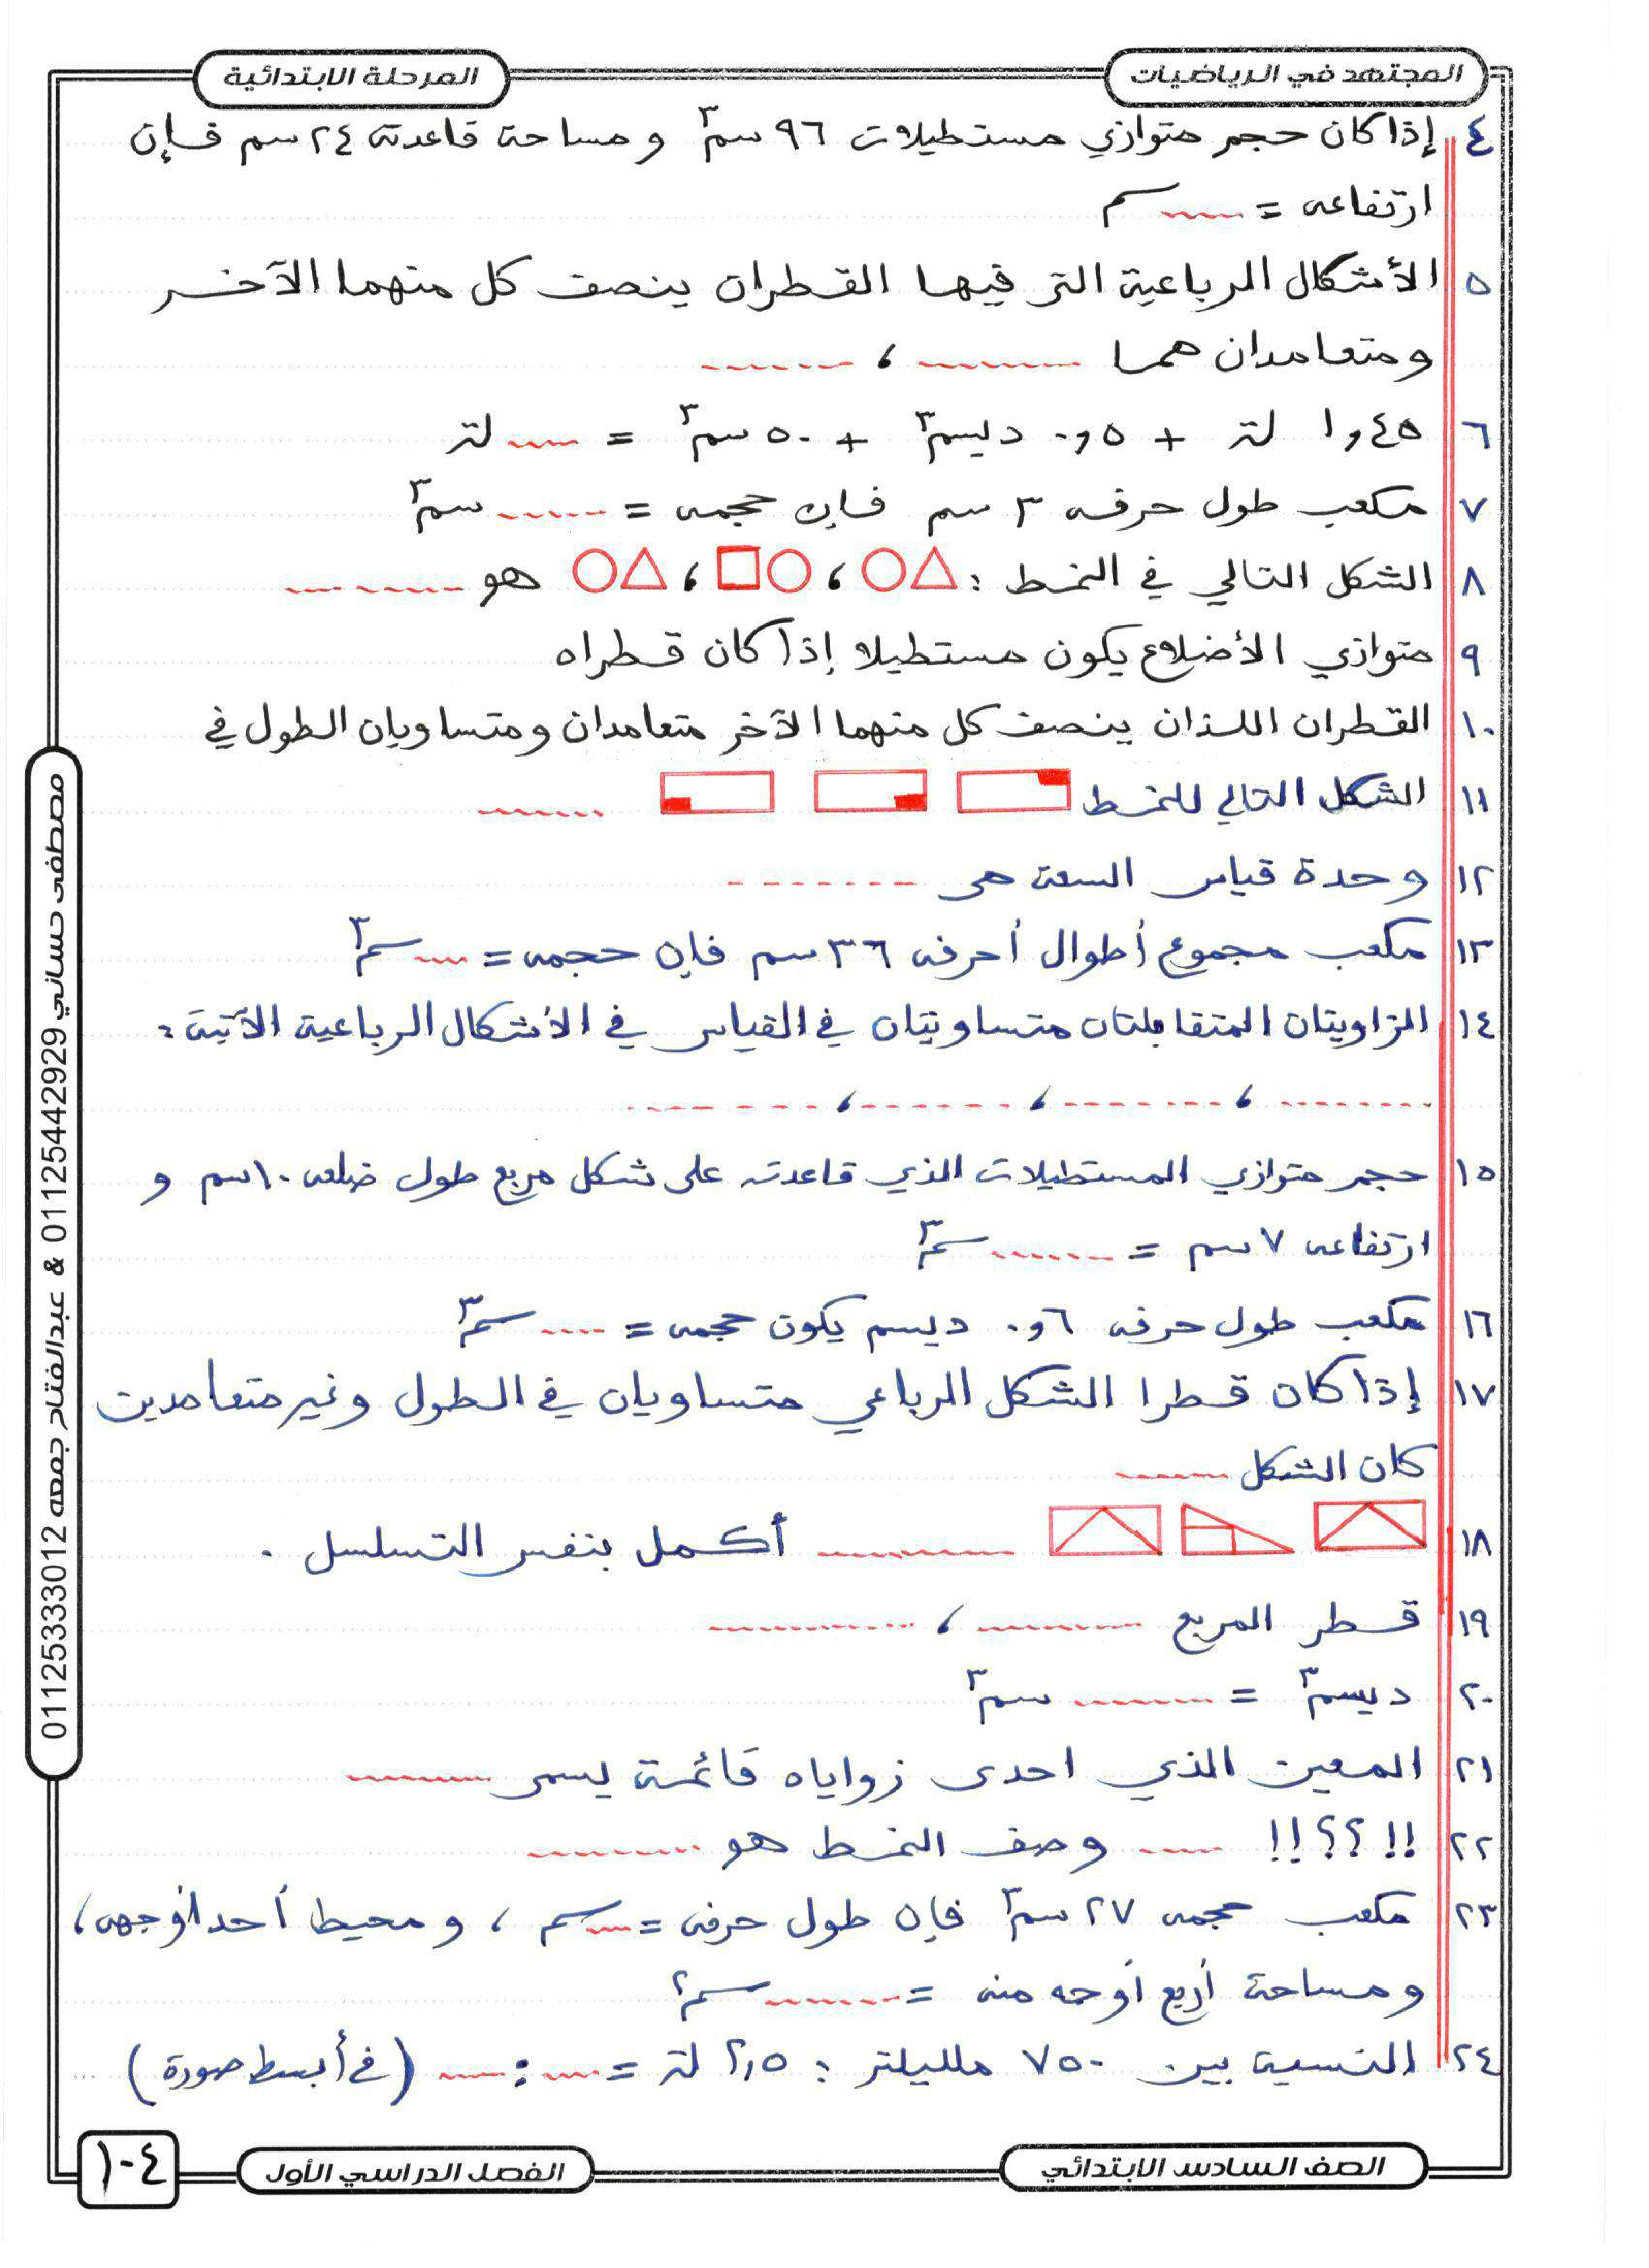 المجتهد في الرياضيات
المرحلة الابتدائية
٤ إذا كان حجم متوازي مستطيلات ٩٦ سم٣ ومساحة قاعدته ٢٤ سم فإن
ارتفاعه = ...... سم
٥ الأشكال الرباعية التى فيها القطران ينصف كل منهما الآخر
ومتعامدان هما ...... ، ......
٦ ١٫٤٥ لتر + ٠٫٥ ديسم٣ + ٥٠ سم٣ = ...... لتر
٧ مكعب طول حرفه ٣ سم فإن حجمه = ...... سم٣
٨ الشكل التالي في النمط : △○ ، ○□ ، △○ هو ......
٩ متوازي الأضلاع يكون مستطيلا إذا كان قطراه
١٠ القطران اللذان ينصف كل منهما الآخر متعامدان ومتساويان الطول في
١١ الشكل التالي للنمط ......
١٢ وحدة قياس السعة هى ......
١٣ مكعب مجموع أطوال أحرفه ٣٦ سم فإن حجمه = ...... سم٣
١٤ الزاويتان المتقابلتان متساويتان في القياس في الأشكال الرباعية الآتية :
...... ، ...... ، ...... ، ......
١٥ حجم متوازي المستطيلات الذي قاعدته على شكل مربع طول ضلعه ١٠ سم و
ارتفاعه ٧ سم = ...... سم٣
١٦ مكعب طول حرفه ٠٫٦ ديسم يكون حجمه = ...... سم٣
١٧ إذا كان قطرا الشكل الرباعي متساويان في الطول وغير متعامدين
كان الشكل ......
١٨ ...... أكمل بنفس التسلسل .
١٩ قطر المربع ...... ، ......
٢٠ ديسم٣ = ...... سم٣
٢١ المعين الذي احدى زواياه قائمة يسمى ......
٢٢ !! ؟؟ !! ...... وصف النمط هو ......
٢٣ مكعب حجمه ٢٧ سم٣ فإن طول حرفه = ...... سم ، ومحيط أحد أوجهه ،
ومساحة أربع أوجه منه = ...... سم٢
٢٤ النسبة بين ٧٥٠ ملليلتر : ٢٫٥ لتر = ...... : ...... (في أبسط صورة)
مصطفى حساني 01125442929 & عبدالفتاح جمعه 01125333012
الصف السادس الابتدائي
الفصل الدراسي الأول
١٠٤